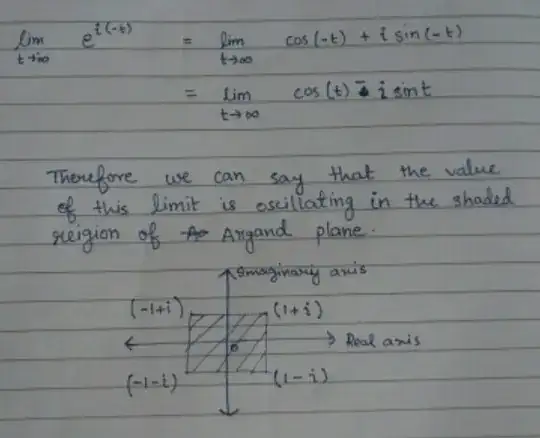 lim e^{i(-t)} = lim cos(-t) + i sin(-t)
t→∞ t→∞
= lim cos(t) - i sint
t→∞
Therefore we can say that the value
of this limit is oscillating in the shaded
reigion of Argand plane.
Imaginary axis
(-1+i) (1+i)
0 Real axis
(-1-i) (1-i)